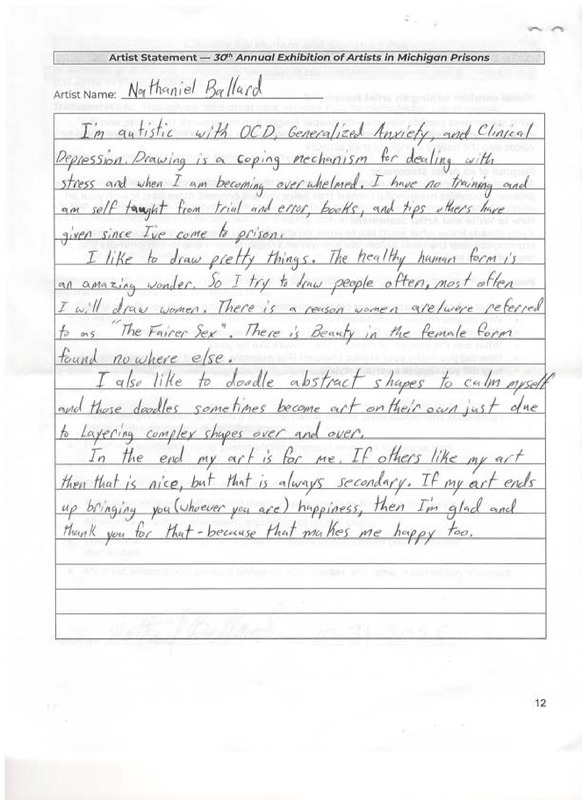 Artist Statement — 30th Annual Exhibition of Artists in Michigan Prisons
Artist Name: Nathaniel Ballard
I'm autistic with OCD, Generalized Anxiety, and Clinical
Depression. Drawing is a coping mechanism for dealing with
stress and when I am becoming overwhelmed. I have no training and
am self taught from trial and error, books, and tips others have
given since I've come to prison.
I like to draw pretty things. The healthy human form is
an amazing wonder. So I try to draw people often, most often
I will draw women. There is a reason women are/were referred
to as "The Fairer Sex". There is Beauty in the female form
found no where else.
I also like to doodle abstract shapes to calm myself
and those doodles sometimes become art on their own just due
to Layering complex shapes over and over.
In the end my art is for me. If others like my art
then that is nice, but that is always secondary. If my art ends
up bringing you (whoever you are) happiness, then I'm glad and
thank you for that - because that makes me happy too.
12